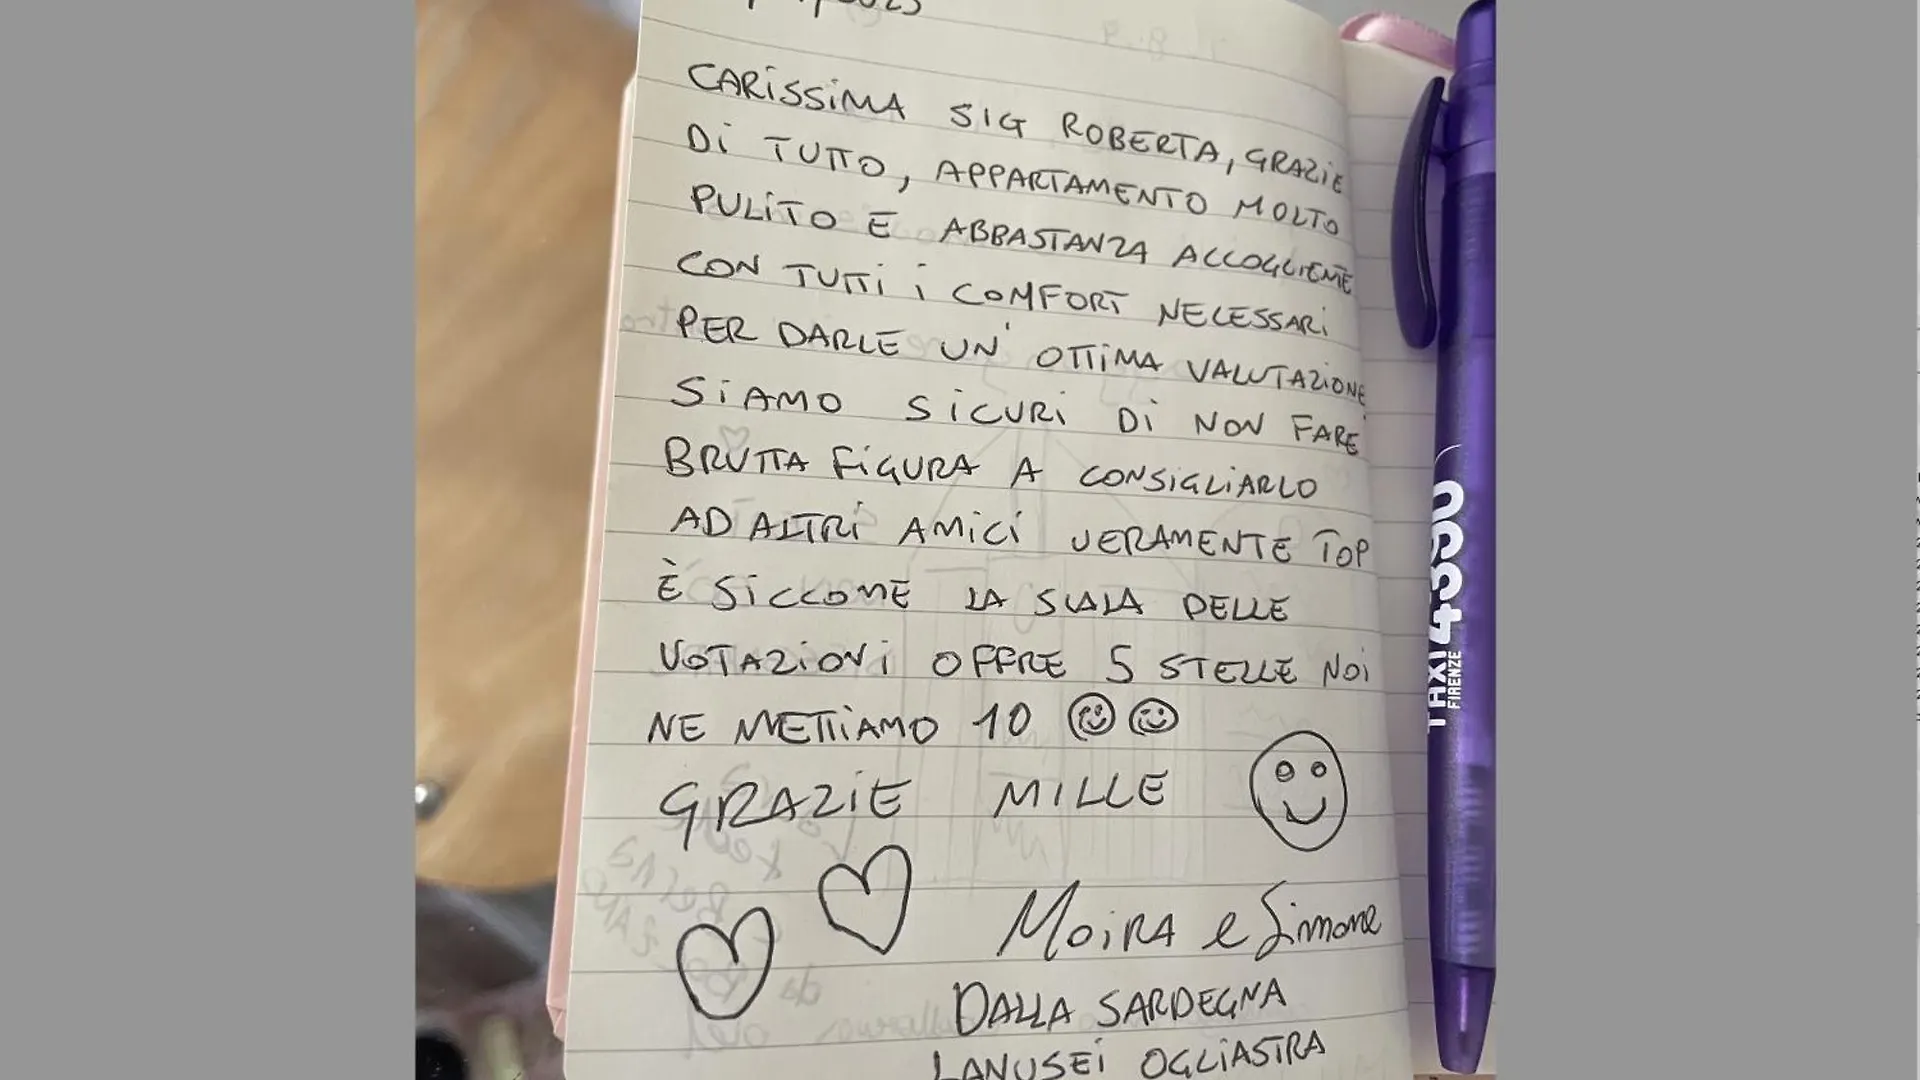 CARISSIMA SIG ROBERTA, GRAZIE
DI TUTTO, APPARTAMENTO MOLTO
PULITO E ABBASTANZA ACCOGLIENTE
CON TUTTI I COMFORT NECESSARI
PER DARLE UN' OTTIMA VALUTAZIONE
SIAMO SICURI DI NON FARE
BRUTTA FIGURA A CONSIGLIARLO
AD ALTRI AMICI VERAMENTE TOP
È SICCOME LA SCALA DELLE
VOTAZIONI OFFRE 5 STELLE NOI
NE METTIAMO 10
GRAZIE MILLE
MOIRA e Simone
DALLA SARDEGNA
LANUSEI OGLIASTRA
TAXI 4390
FIRENZE